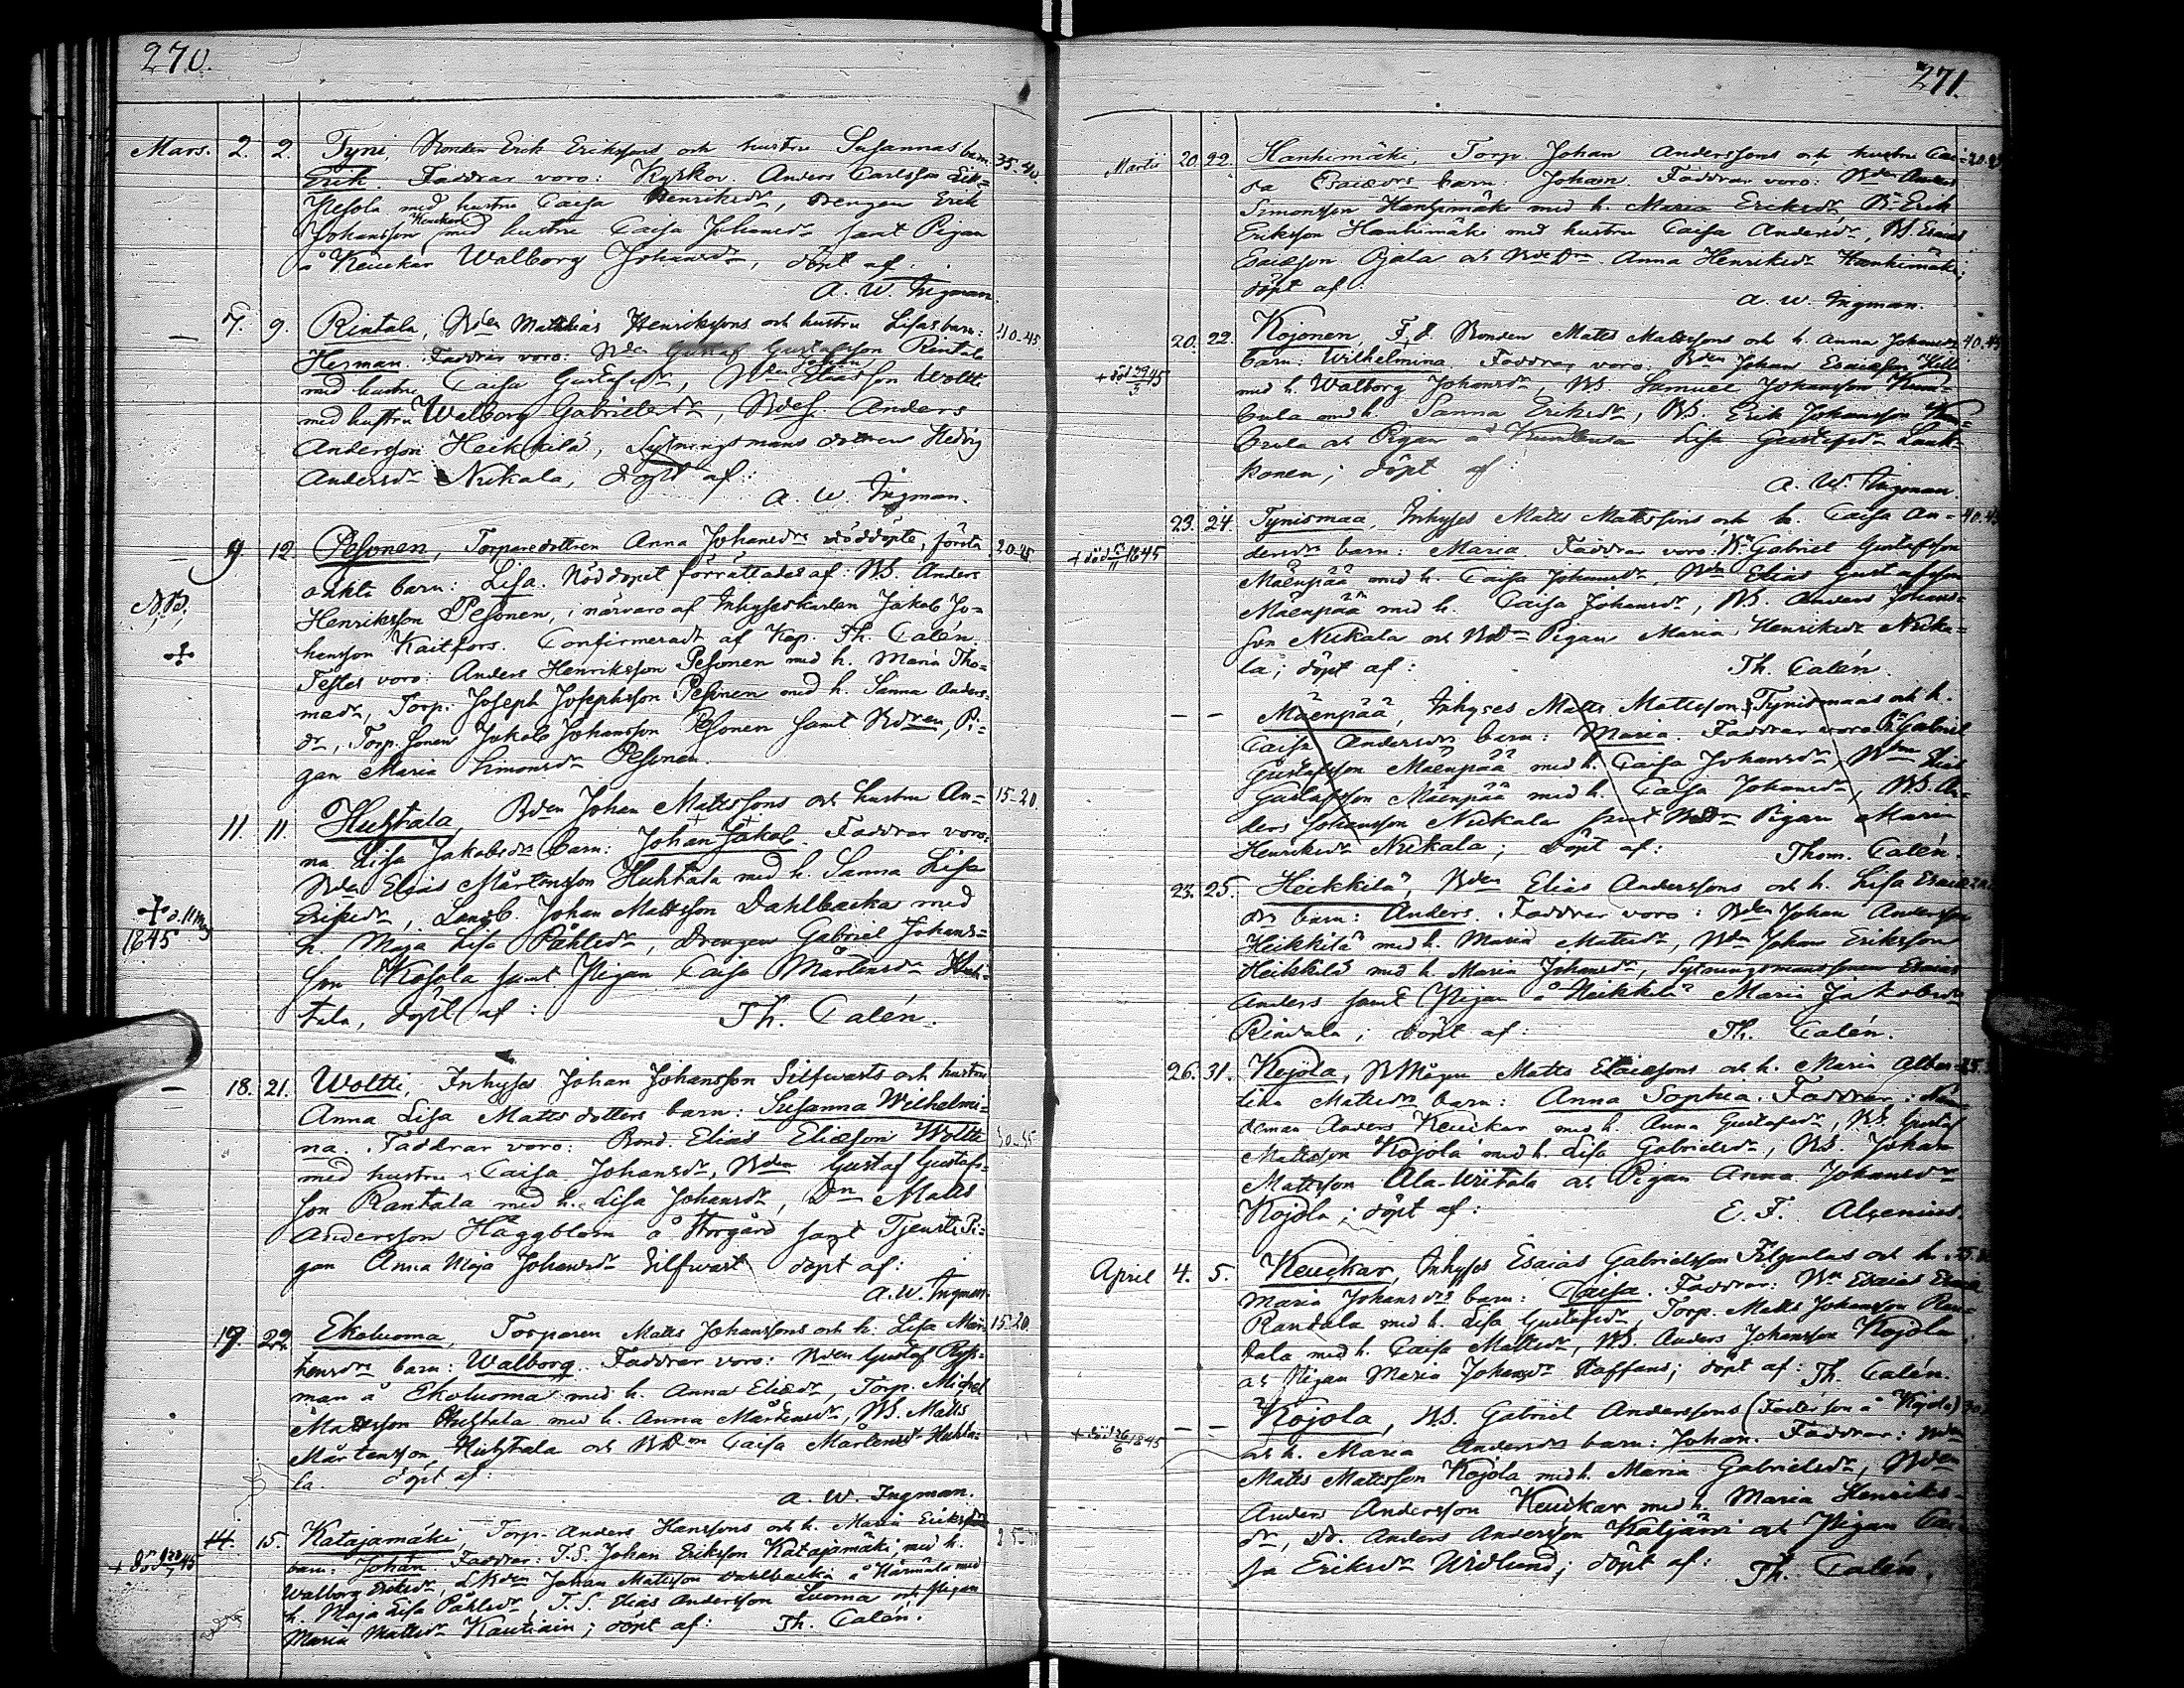 270.
Mars. 2. 2. Tyni, Bonden Erik Erikssons och hustru Susannas barn: 35-40.
Erik. Faddrar voro: Kyrkov. Anders Carlsson
Pesola med hustru Caisa Henriksdr, Drengen Erik
Johansson Keuckar med hustru Caisa Johansdr samt Pigan
å Keuckar Walborg Johansdr, döpt af
A. W. Ingman.
— 7. 9. Rintala, Bden Matthias Henrikssons och hustru Lisas barn: 40-45.
Herman. Faddrar voro: Bden Gustaf Gustafsson Rintala
med hustru Caisa Gustafsdr, Bdn Eliasson Woltti
med hustru Walborg Gabrielsdr, Anders
Andersson Heikkilä, Sytningsmans dottren Hedvig
Andersdr Nukala, döpt af:
A. W. Ingman.
— 9 12. Pesonen, Torparedottren Anna Johansdrs nöddöpte, första 20-25.
oäkta barn: Lisa. Nöddopet förrättades af: BS. Anders
N.B. Henriksson Pesonen, i närvaro af Inhyseskarlen Jakob Jo=
hansson Kaitfors. Confirmeradt af Kap. Th. Calén.
Testes voro: Anders Henriksson Pesonen med h. Maria Tho=
masdr, Torp. Joseph Josephsson Pesonen med h. Sanna Anders=
dr, Torp. sonen Jakob Johansson Pesonen samt Bdren, Pi=
gan Maria Simonsdr Pesonen.
11. 11. Huhtala, Bden Johan Mattssons och hustru An= 15-20.
na Lisa Jakobsdrs barn: Johan Jakob. Faddrar voro:
Bden Elias Mårtensson Huhtala med h. Sanna Lisa
+ d. 11 Maj 1845 Eriksdr, Landb. Johan Mattsson Dahlbacka med
h. Maja Lisa Påhlsdr, Drengen Gabriel Johans=
son Kosola samt Pigan Caisa Mårtensdr Huh=
tala, döpt af: Th. Calén.
— 18. 21. Woltti, Inhyses Johan Johansson Silfwasts och hustru
Anna Lisa Matts dotters barn: Susanna Wilhelmi=
na. Faddrar voro: Bond. Elias Eliasson Woltti 30-35
med hustru Caisa Johansdr, Bden Gustaf Gustafs=
son Rantala med h. Lisa Johansdr, Dn Matts
Andersson Häggblom å Storgård samt Tjenste Pi=
gan Anna Maja Johansdr Silfwast döpt af:
A. W. Ingman.
19. 22. Ekoluoma, Torparen Matts Johanssons och h. Lisa Mår= 15-20.
tensdrs barn: Walborg. Faddrar voro: Bden Gustaf
man å Ekoluoma med h. Anna Eliedr, Torp. Michel
Mattsson Huhtala med h. Anna Mårtensdr, BS. Matts
Mårtensson Huhtala och BDrn Caisa Mårtensdr Huhta=
la. döpt af:
A. W. Ingman.
14. 15. Katajamäki Torp. Anders Hanssons och h. Maria Eriksdrs 25-30
+ död 45 barn: Johan. Faddrar: T.S. Johan Eriksson Katajamäki med h.
Walborg Eriksdr, Bden Johan Mattsson Dahlbacka å Härmälä med
h. Maja Lisa Påhlsdr T.S. Elias Andersson Luoma och Pigan
Maria Mattsdr Kautiain; döpt af: Th. Calén.
271.
Martii 20. 22. Hanhimäki, Torp. Johan Anderssons och hustru Cai= 20.25
sa Esaiædrs barn: Johan. Faddrar voro: Bden Anders
Simonsson Hanhimäki med h. Maria Eriksdr, Bn Erik
Eriksson Hanhimäki med hustru Caisa Andersdr, BS. Esaias
Esaiæson Ojala och BdeDrn Anna Henriksdr Hanhimäki;
döpt af:
A. W. Ingman.
20. 22. Kojonen, F,d Bonden Matts Mattssons och h. Anna Johansdrs 40.45
barn: Wilhelmina. Faddrar voro: Bden Johan Esaiæson
+ död 29/3 45 med h. Walborg Johansdr, BS. Samuel Johansson
med h. Sanna Eriksdr, BS. Erik Johansson
och Pigan å Lisa Gustafsdr Lauk=
konen; döpt af:
A. W. Ingman.
23. 24. Tynismaa, Inhyses Matts Mattssons och h. Caisa An= 40.45
+ död 1845 dersdrs barn: Maria Faddrar voro: Bn Gabriel Gustafsson
Mäenpää med h. Caisa Johansdr, Bden Elias Gustafsson
Mäenpää med h. Caisa Johansdr, BS. Anders Johans=
son Nukala och Bdrn Pigan Maria Henriksdr Nuka=
la; döpt af: Th. Calén.
— — Mäenpää, Inhyses Matts Mattsson Tynismaas och h.
Caisa Andersdrs barn: Maria. Faddrar voro: Bn Gabriel
Gustafsson Mäenpää med h. Caisa Johansdr, Bden Elias
Gustafsson Mäenpää med h. Caisa Johansdr, BS. An=
ders Johansson Nukala samt Bdrn Pigan Maria
Henriksdr Nukala; döpt af: Thom. Calén.
23. 25. Heikkilä, Bden Elias Anderssons och h. Lisa Esaiæ
drs barn: Anders. Faddrar voro: Bden Johan Andersson
Heikkilä med h. Maria Mattsdr, Bden Johan Eriksson
Heikkilä med h. Maria Johansdr, Sytningsmanssonen Esaias
Anders samt Pigan å Heikkilä Maria Jakobsdr
Rindala; döpt af: Th. Calén.
26. 31. Kojola, BMågen Matts Elaiæsons och h. Maria Alber= 25.
tina Mattsdrs barn: Anna Sophia. Faddrar: Nämn=
deman Anders Keuckar med h. Anna Gustafsdr, BS. Gustaf
Mattsson Kojola med h. Lisa Gabrielsdr, BS. Johan
Mattsson Ala-Wiitala och Pigan Anna Johansdr
Kojola; döpt af: E. F. Alcenius.
April 4. 5. Keuckar, Inhyses Esaias Gabrielsson Filpulas och h.
Maria Johansdrs barn: Caisa. Faddrar: Bn Esaias
Rantala med h. Lisa Gustafsdr, Torp. Matts Johansson Ran=
tala med h. Caisa Mattsdr, BS. Anders Johansson Kojola
och Pigan Maria Johansdr Staffans; döpt af: Th. Calén.
— — Kojola, BS. Gabriel Anderssons (Fosterson å Kojola) 30
+ död 26/6 1845 och h. Maria Andersdrs barn: Johan. Faddrar: Bden
Matts Mattsson Kojola med h. Maria Gabrielsdr, Bden
Anders Andersson Keuckar med h. Maria Henriks=
dr, Dr. Anders Andersson Katjärvi och Pigan Cai=
sa Eriksdr Widlund; döpt af: Th. Calén.